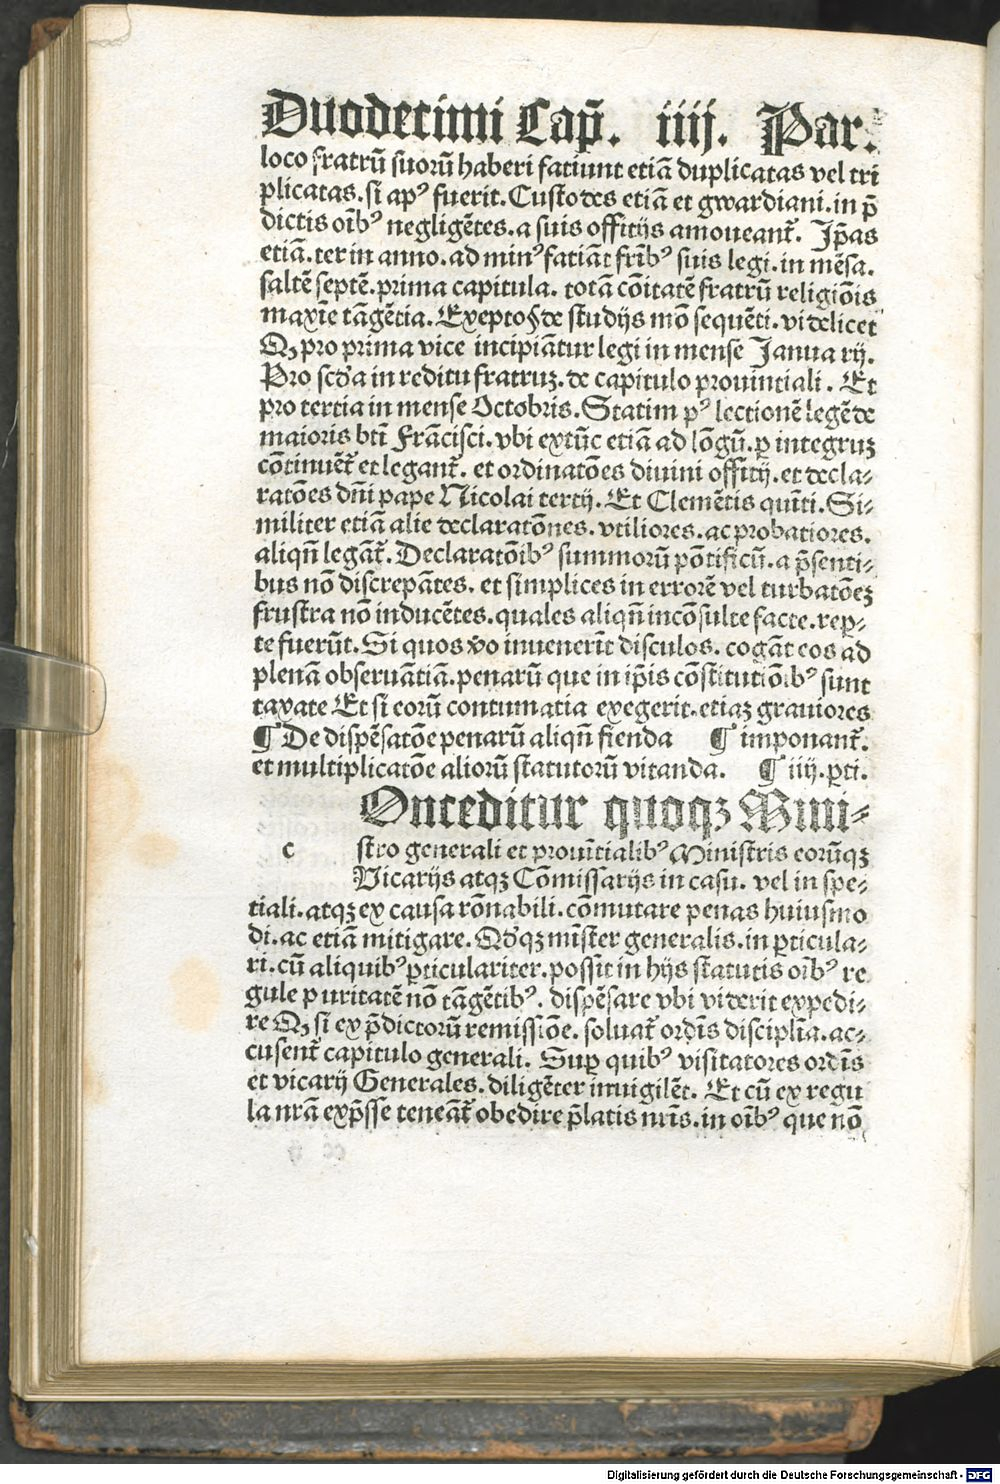 Duodecimi Cap̄. iiij. Par.
loco fratrū suorū haberi fatiunt etiā duplicatas vel tri
plicatas. si apꝰ fuerit. Custodes etiā et gwardiani. in p̄
dictis oībꝰ negligētes. a suis offitijs amoueant᷑. Ip̄as
etiā. ter in anno. ad minꝰ fatiāt frībꝰ suis legi. in mēsa.
saltē septē. prima capitula. totā cōitatē fratrū religiōis
maxīe tāgētia. Exepto § de studijs mō sequēti. videlicet
Qꝫ pro prima vice incipiātur legi in mense Janua rij.
Pro scd̄a in reditu fratruꝫ. de capitulo prouintiali. Et
pro tertia in mense Octobris. Statim pꝰ lectionē legēde
maioris btī Frācisci. vbi extūc etiā ad lōgū. ꝑ integruꝫ
cōtinuēt᷑ et legant᷑. et ordinatōes diuini offitij. et decla⸗
ratōes dn̄i pape Nicolai tertij. Et Clemētis quīti. Si⸗
militer etiā alie declaratōnes. vtiliores. ac probatiores.
aliqn̄ legāt᷑. Declaratōibꝰ summorū pōtificū. a p̄senti⸗
bus nō discrepātes. et simplices in errorē vel turbatōeꝫ
frustra nō inducētes. quales aliqn̄ incōsulte facte. reꝑ⸗
te fuerūt. Si quos v̄o inuenerīt discolos. cogāt eos ad
plenā obseruātiā. penarū que in ip̄is cōstitutiōibꝰ sunt
taxate Et si eorū contumatia exegerit. etiaꝫ grauiores
¶ De dispēsatōe penarū aliqn̄ fienda ¶ imponant᷑.
et multiplicatōe aliorū statutorū vitanda. ¶ iiij. ꝑti.
Onceditur quoqꝫ Mini⸗
c stro generali et prouītialibꝰ Ministris eorūqꝫ
Vicarijs atqꝫ Cōmissarijs in casu. vel in spe⸗
tiali. atqꝫ ex causa rōnabili. cōmutare penas huiusmo
di. ac etiā mitigare. Qd̄qꝫ mīster generalis. in ꝑticula⸗
ri. cū aliquibꝰ ꝑticulariter. possit in hijs statutis oībꝰ re
gule puritatē nō tāgētibꝰ. dispēsare vbi viderit expedi⸗
re Qꝫ si ex p̄dictorū remissiōe. soluat᷑ ordīs disciplīa. ac⸗
cusent᷑ capitulo generali. Suꝑ quibꝰ visitatores ordīs
et vicarij Generales. diligēter inuigilēt. Et cū ex regu
la nr̄a exp̄sse teneāt᷑ obedire p̄latis nr̄is. in oībꝰ que nō
Digitalisierung gefördert durch die Deutsche Forschungsgemeinschaft - DFG